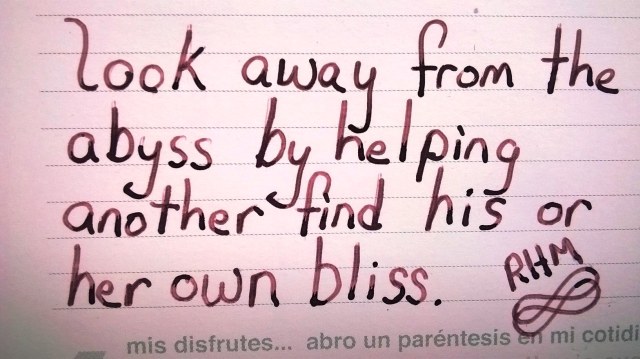 look away from the
abyss by helping
another find his or
her own bliss.
RHM
mis disfrutes... abro un paréntesis en mi cotidi